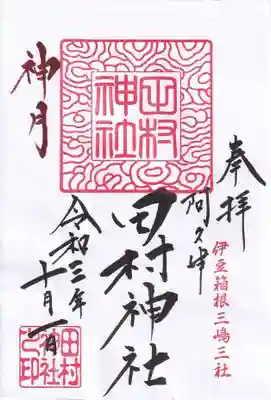 奉拝
伊豆箱根三嶋三社
阿久津
田村神社
田村
神社
神月
令和三年
十月一日
田村
神社
之印